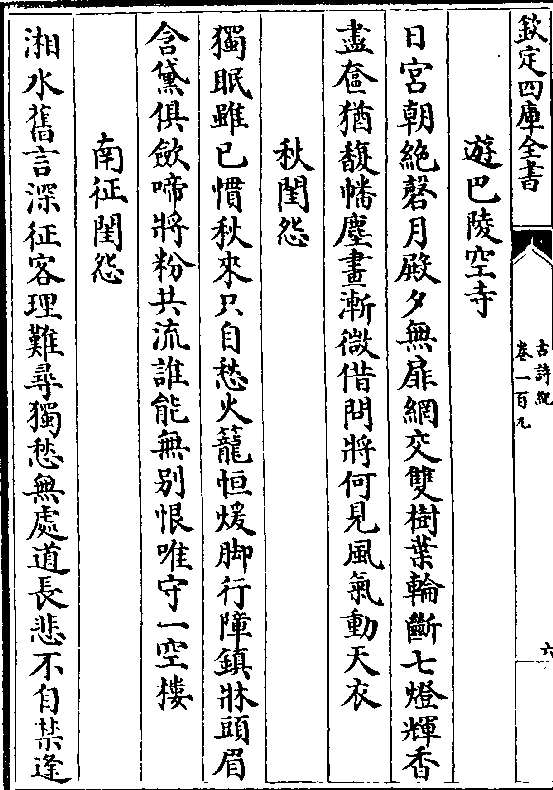 欽定四庫全書
古詩紀
卷一百九
六
遊巴陵空寺
日宮朝絶磬月殿夕無扉網交雙樹葉輪斷七燈輝香
盡奩猶馥幡塵畫漸微借問將何見風氣動天衣
秋閨怨
獨眠雖已慣秋來只自愁火籠恒煖脚行障鎮牀頭眉
含黛俱歛啼將粉共流誰能無别恨唯守一空樓
南征閨怨
湘水舊言深征客理難尋獨愁無處道長悲不自禁逢